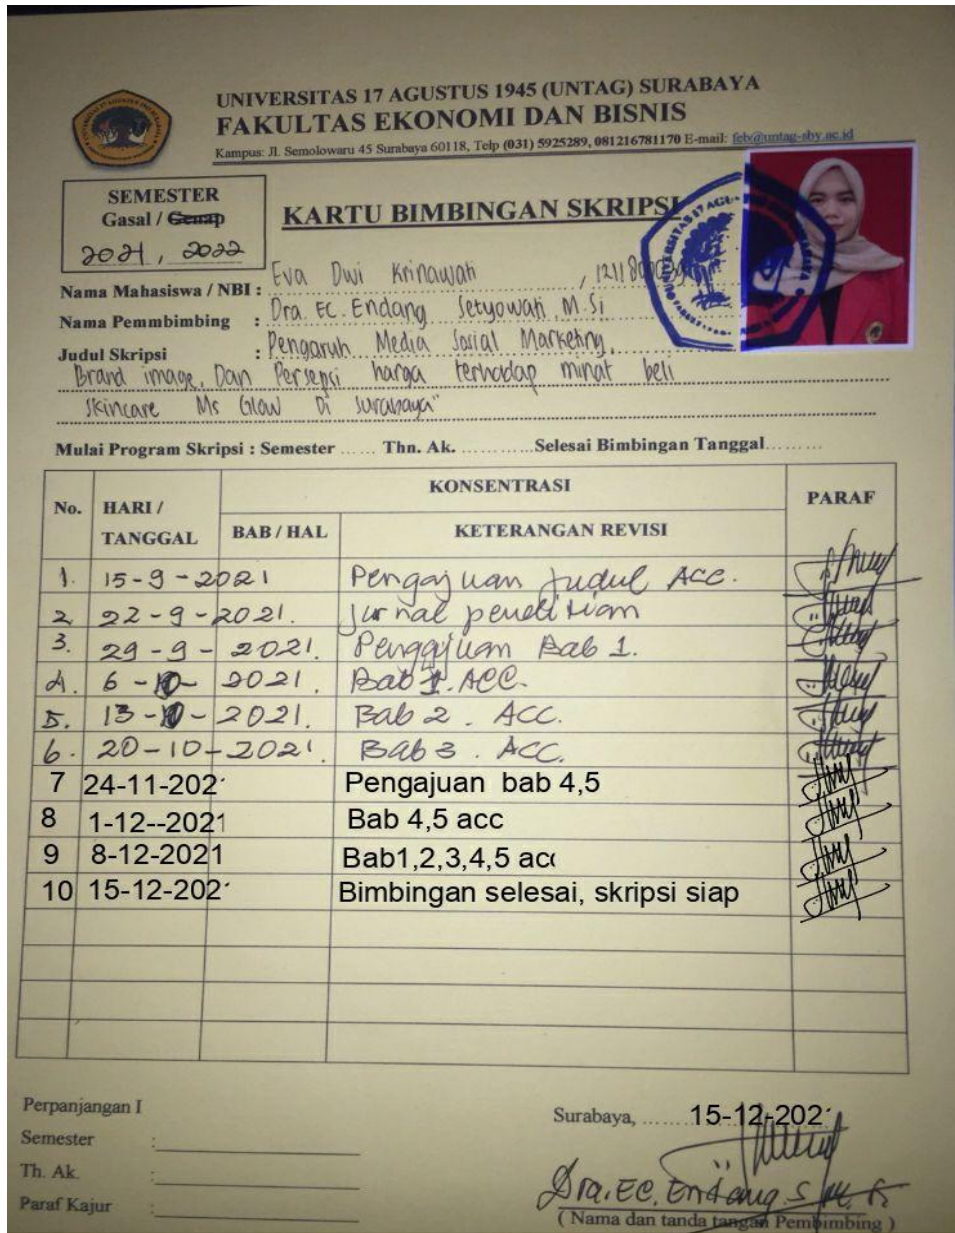 UNIVERSITAS 17 AGUSTUS 1945 (UNTAG) SURABAYA
FAKULTAS EKONOMI DAN BISNIS
Kampus: Jl. Semolowaru 45 Surabaya 60118, Telp (031) 5925289, 081216781170 E-mail: feb@untag-sby.ac.id
SEMESTER
Gasal / Genap
2021, 2022
KARTU BIMBINGAN SKRIPSI
Nama Mahasiswa / NBI : Eva Dwi Krinawati
Nama Pemmbimbing : Dra. EC. Endang Setyowati, M.Si
Judul Skripsi : Pengaruh Media Sosial Marketing,
Brand image, Dan Persepsi harga terhadap minat beli
Skincare Ms Glow Di Surabaya"
Mulai Program Skripsi : Semester ...... Thn. Ak. ............ Selesai Bimbingan Tanggal.........
No. HARI / TANGGAL KONSENTRASI PARAF
BAB / HAL KETERANGAN REVISI
1. 15-9-2021 Pengajuan Judul ACC.
2. 22-9-2021. Jurnal penelitian
3. 29-9-2021. Pengajuan Bab 1.
4. 6-10-2021. Bab 1. ACC.
5. 13-10-2021. Bab 2. ACC.
6. 20-10-2021. Bab 3. ACC.
7 24-11-202 Pengajuan bab 4,5
8 1-12--2021 Bab 4,5 acc
9 8-12-2021 Bab1,2,3,4,5 acc
10 15-12-202 Bimbingan selesai, skripsi siap
Perpanjangan I
Semester :
Th. Ak. :
Paraf Kajur :
Surabaya, ...... 15-12-202
Dra. EC. Endang. S
( Nama dan tanda tangan Pembimbing )